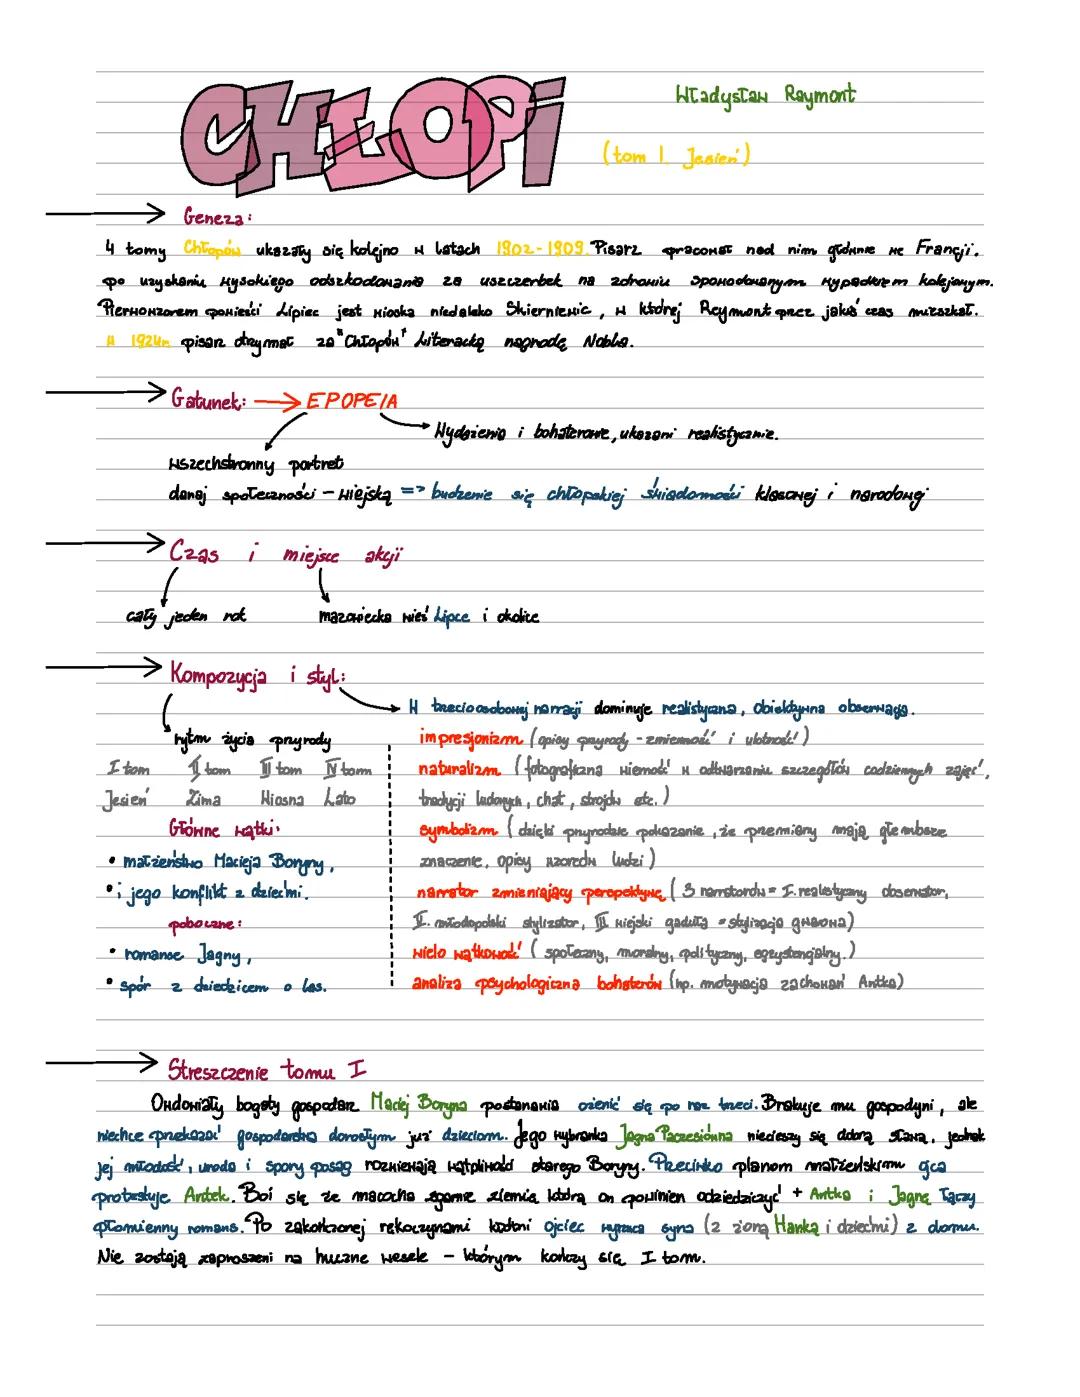 CHŁOPi
Władysław Reymont
(tom I. Jesień)
Geneza:
4 tomy Chłopów ukazały się kolejno w latach 1902-1909. Pisarz pracował nad nim głównie we Francji.
po uzyskaniu wysokiego odszkodowania za uszczerbek na zdrowiu spowodowanym wypadkiem kolejowym.
Pierwowzorem powieści Lipiec jest wioska niedaleko Skierniewic, w której Reymont przez jakiś czas mieszkał.
W 1924r. pisarz otrzymał za "Chłopów" Literacką nagrodę Nobla.
Gatunek: EPOPEJA
Wydarzenia i bohaterowie, ukazani realistycznie.
wszechstronny portret
danej społeczności - wiejską => budzenie się chłopskiej świadomości klasowej i narodowej
Czas i miejsce akcji
cały jeden rok
mazowiecka wieś Lipce i okolice
Kompozycja i styl:
W trzecioosobowej narracji dominuje realistyczna, obiektywna obserwacja.
rytm życia przyrody
I tom II tom III tom IV tom
Jesień Zima Wiosna Lato
Główne wątki:
• małżeństwo Macieja Boryny,
• i jego konflikt z dziećmi.
poboczne:
• romanse Jagny,
• spór z dziedzicem o las.
impresjonizm (opisy przyrody - zmienność i ulotność)
naturalizm (fotograficzna wierność w odtwarzaniu szczegółów codziennych zajęć,
tradycji ludowych, chat, strojów etc.)
symbolizm (dzięki przyrodzie pokazanie, że przemiany mają głembsze
znaczenie, opisy wzorców ludzi)
narrator zmieniający perspektywę (3 narratorów = I. realistyczny obserwator,
II. młodopolski stylizator, III wiejski gaduła = stylizacja gwarowa)
wielo wątkowość (społeczny, moralny, polityczny, egzystencjalny.)
analiza psychologiczna bohaterów (np. motywacja zachowań Antka)
Streszczenie tomu I
Owdowiały bogaty gospodarz Maciej Boryna postanawia ożenić się po raz trzeci. Brakuje mu gospodyni, ale
niechce przekazać gospodarstwa dorosłym już dzieciom. Jego wybranka Jagna Paczesiówna niecieszy się dobrą sławą, jednak
jej młodość, uroda i spory posag rozwiewają wątpliwości starego Boryny. Przeciwko planom małżeńskim ojca
protestuje Antek. Boi się że macocha zgarnie ziemię którą on powinien odziedziczyć + Antka i Jagnę łączy
płomienny romans. Po zakończonej rękoczynami kłótni ojciec wyrzuca syna (z żoną Hanką i dziećmi) z domu.
Nie zostają zaproszeni na huczne wesele - którym kończy się I tom.